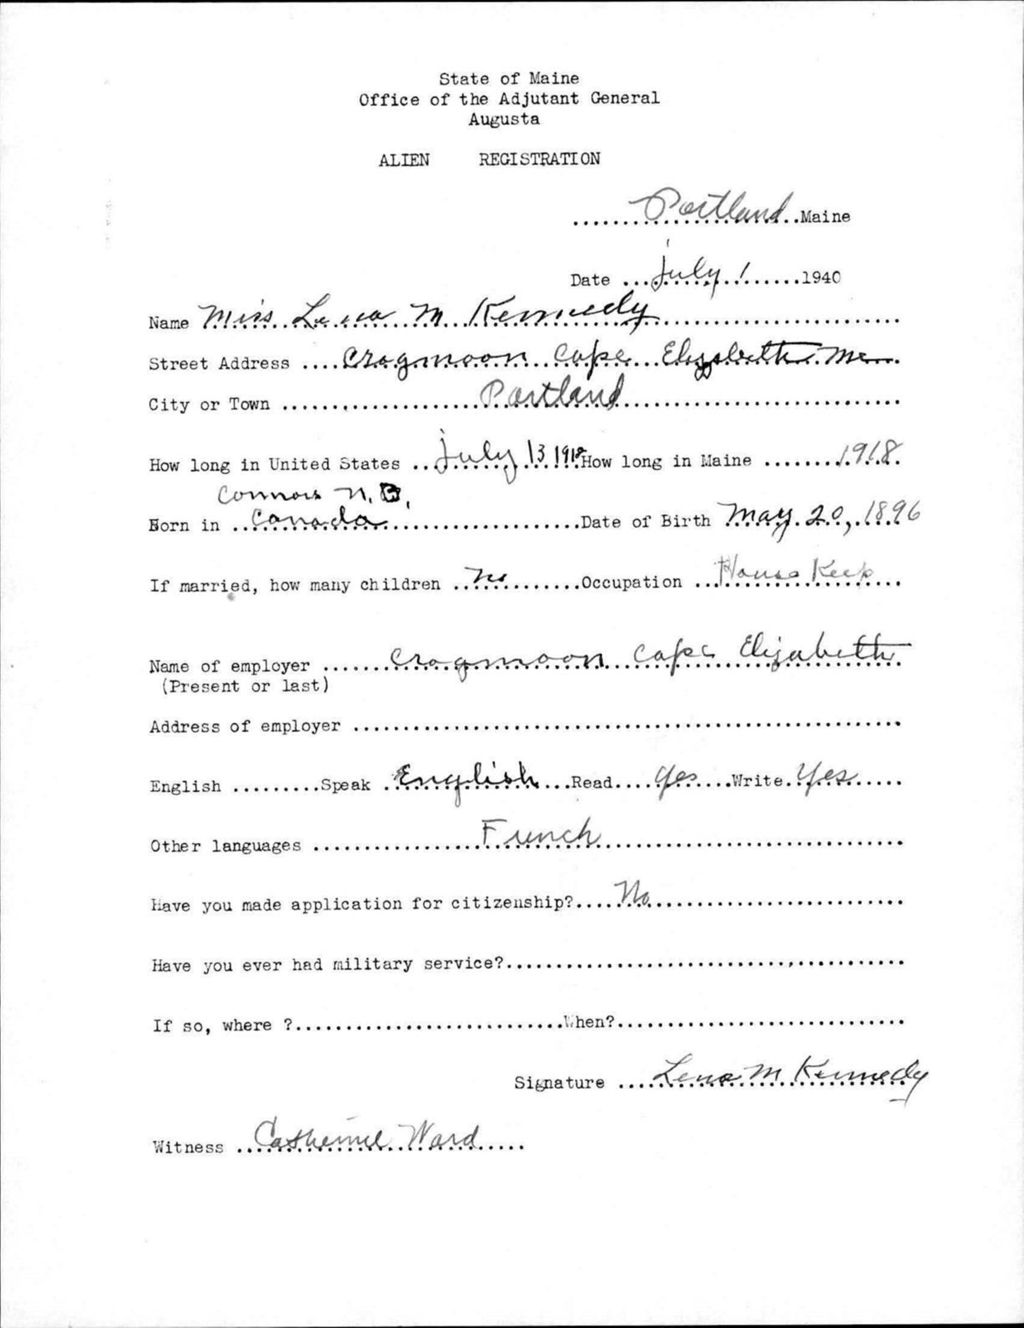 State of Maine
Office of the Adjutant General
Augusta
ALIEN REGISTRATION
Portland Maine
Date July 1 1940
Name Miss Lena M Kennedy
Street Address Cragmoon Cape Elizabeth Me
City or Town Portland
How long in United States July 13 1918 How long in Maine 1918
Connors N.B,
Born in Canada Date of Birth May 20, 1896
If married, how many children No Occupation House Keep
Name of employer Cragmoon Cape Elizabeth
(Present or last)
Address of employer
English Speak English Read Yes Write Yes
Other languages French
Have you made application for citizenship? No
Have you ever had military service?
If so, where ? When?
Signature Lena M Kennedy
Witness Catherine Ward